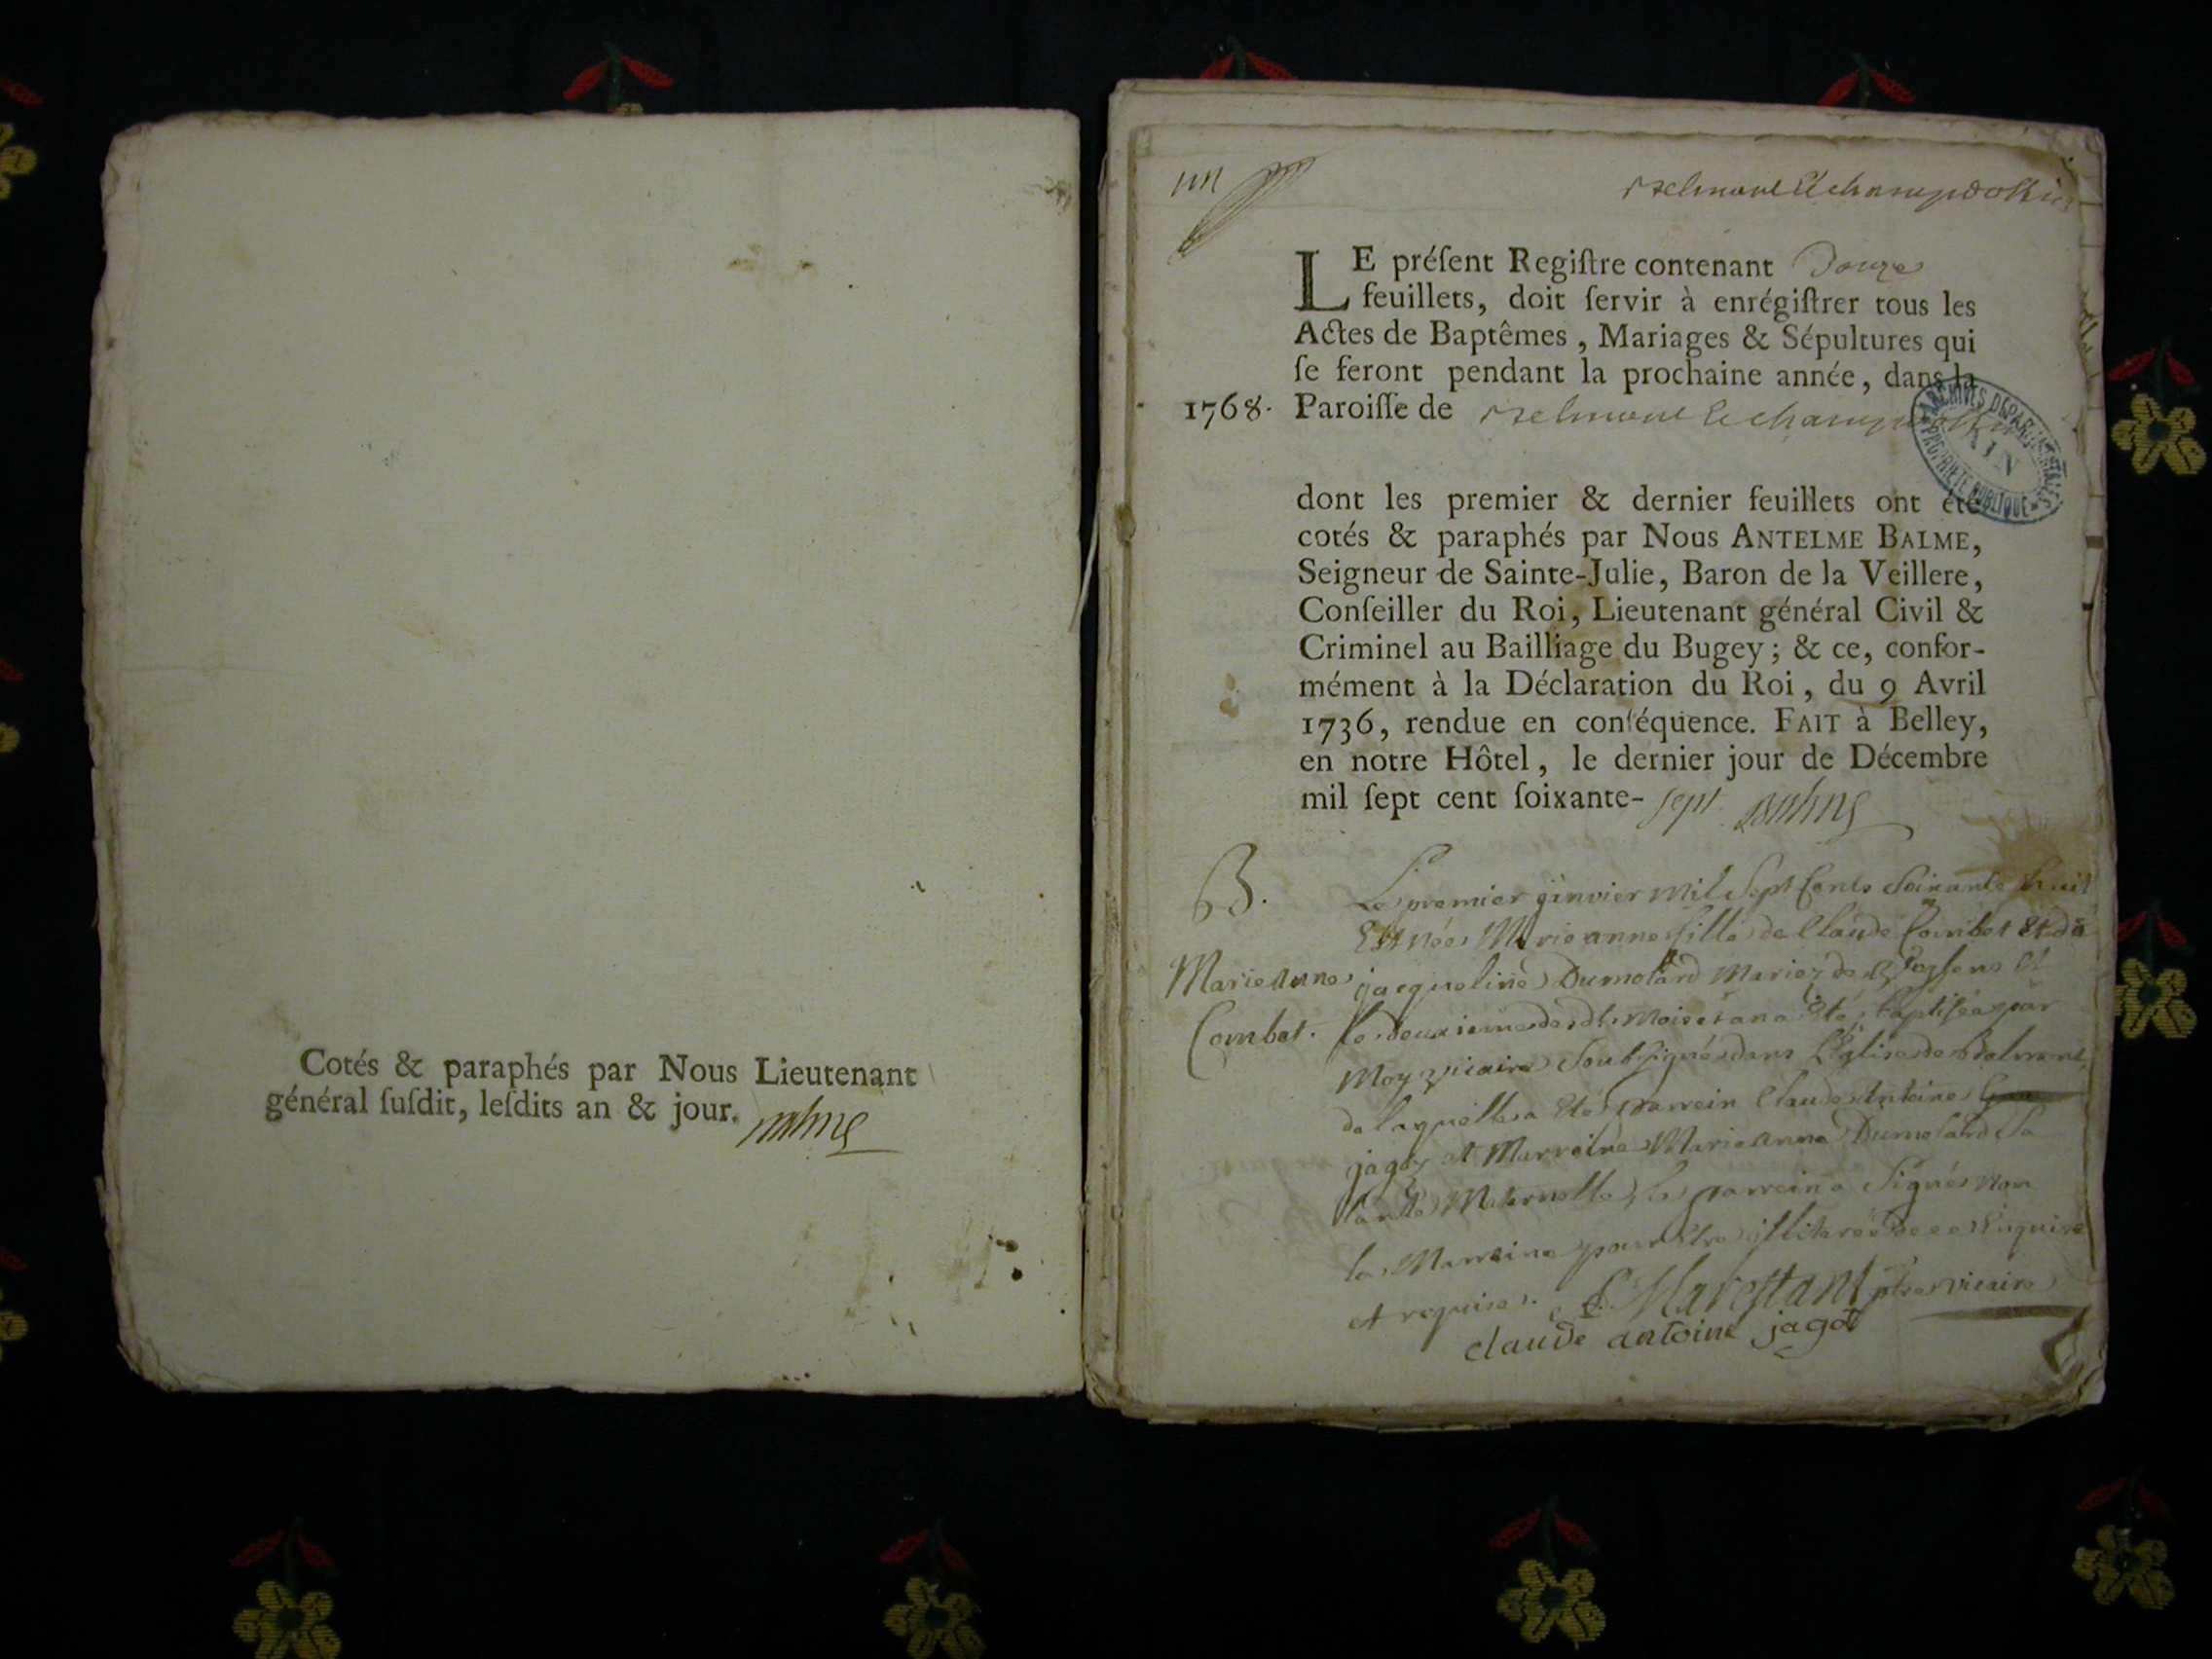 Cotés & paraphés par Nous Lieutenant
général ſuſdit, leſdits an & jour. Balme
un
Belmont et champdossin
LE préſent Regiſtre contenant Douze
feuillets, doit ſervir à enrégiſtrer tous les
Actes de Baptêmes, Mariages & Sépultures qui
ſe feront pendant la prochaine année, dans la
1768. Paroiſſe de Belmont et
ARCHIVES DÉPARTEMENTALES
AIN
PROPRIÉTÉ PUBLIQUE
dont les premier & dernier feuillets ont été
cotés & paraphés par Nous ANTELME BALME,
Seigneur de Sainte-Julie, Baron de la Veillere,
Conſeiller du Roi, Lieutenant général Civil &
Criminel au Bailliage du Bugey; & ce, confor-
mément à la Déclaration du Roi, du 9 Avril
1736, rendue en conſéquence. FAIT à Belley,
en notre Hôtel, le dernier jour de Décembre
mil ſept cent ſoixante- sept Balme
B.
Marieanne
Combet.
Le premier ginvier mil Sept Cents Soixante huit
Est née Marie anne fille de Claude Combet et de
jacqueline Dumolard Mariez de et
le deuxieme dudt. Mois et an a Eté baptisée par
Moy vicaire Soubsigné dans L'Eglise de Belmont
de laquelle a Eté parrein Claude Antoine
jagot et Marreine Marie Anne Dumolard Sa
tante Maternelle, le parrein a Signé non
la Marreine pour Etre illiterée de ce Enquise
et requise. Marestant ptre vicaire
claude antoine jagot